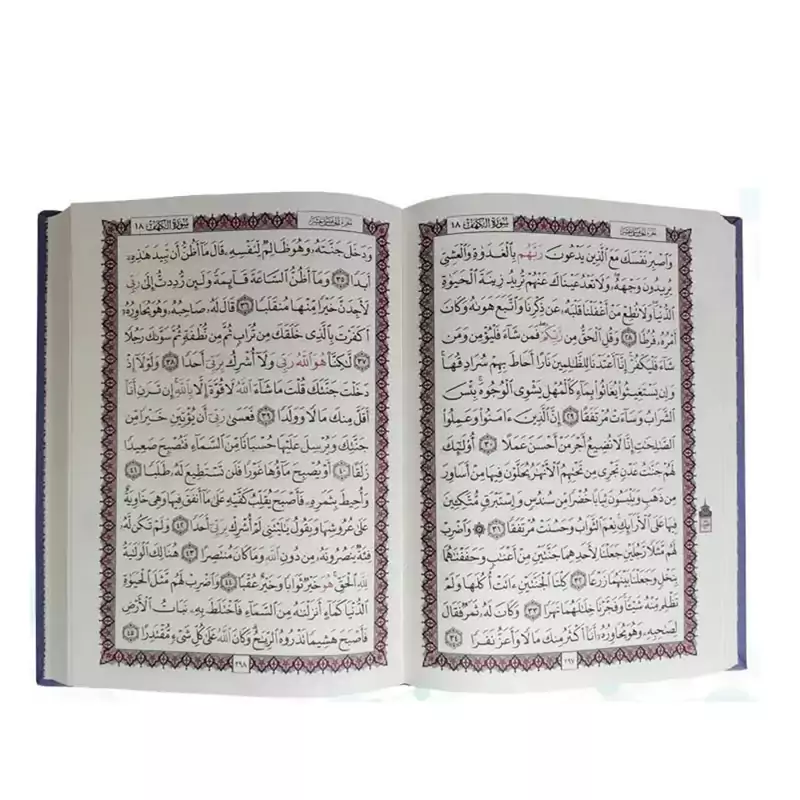 الجزء الخامس عشر سورة الكهف ١٨
وَٱصْبِرْ نَفْسَكَ مَعَ ٱلَّذِينَ يَدْعُونَ رَبَّهُم بِٱلْغَدَوٰةِ وَٱلْعَشِىِّ
يُرِيدُونَ وَجْهَهُۥ وَلَا تَعْدُ عَيْنَاكَ عَنْهُمْ تُرِيدُ زِينَةَ ٱلْحَيَوٰةِ
ٱلدُّنْيَا وَلَا تُطِعْ مَنْ أَغْفَلْنَا قَلْبَهُۥ عَن ذِكْرِنَا وَٱتَّبَعَ هَوَىٰهُ وَكَانَ
أَمْرُهُۥ فُرُطًا ٢٨ وَقُلِ ٱلْحَقُّ مِن رَّبِّكُمْ فَمَن شَآءَ فَلْيُؤْمِن وَمَن
شَآءَ فَلْيَكْفُرْ إِنَّآ أَعْتَدْنَا لِلظَّٰلِمِينَ نَارًا أَحَاطَ بِهِمْ سُرَادِقُهَا
وَإِن يَسْتَغِيثُوا۟ يُغَاثُوا۟ بِمَآءٍ كَٱلْمُهْلِ يَشْوِى ٱلْوُجُوهَ بِئْسَ
ٱلشَّرَابُ وَسَآءَتْ مُرْتَفَقًا ٢٩ إِنَّ ٱلَّذِينَ ءَامَنُوا۟ وَعَمِلُوا۟
ٱلصَّٰلِحَٰتِ إِنَّا لَا نُضِيعُ أَجْرَ مَنْ أَحْسَنَ عَمَلًا ٣٠ أُو۟لَٰٓئِكَ
لَهُمْ جَنَّٰتُ عَدْنٍ تَجْرِى مِن تَحْتِهِمُ ٱلْأَنْهَٰرُ يُحَلَّوْنَ فِيهَا مِنْ أَسَاوِرَ
مِن ذَهَبٍ وَيَلْبَسُونَ ثِيَابًا خُضْرًا مِّن سُندُسٍ وَإِسْتَبْرَقٍ مُّتَّكِـِٔينَ
فِيهَا عَلَى ٱلْأَرَآئِكِ نِعْمَ ٱلثَّوَابُ وَحَسُنَتْ مُرْتَفَقًا ٣١ وَٱضْرِبْ
لَهُم مَّثَلًا رَّجُلَيْنِ جَعَلْنَا لِأَحَدِهِمَا جَنَّتَيْنِ مِنْ أَعْنَٰبٍ وَحَفَفْنَٰهُمَا
بِنَخْلٍ وَجَعَلْنَا بَيْنَهُمَا زَرْعًا ٣٢ كِلْتَا ٱلْجَنَّتَيْنِ ءَاتَتْ أُكُلَهَا وَلَمْ
تَظْلِم مِّنْهُ شَيْـًٔا وَفَجَّرْنَا خِلَٰلَهُمَا نَهَرًا ٣٣ وَكَانَ لَهُۥ ثَمَرٌ فَقَالَ
لِصَٰحِبِهِۦ وَهُوَ يُحَاوِرُهُۥٓ أَنَا۠ أَكْثَرُ مِنكَ مَالًا وَأَعَزُّ نَفَرًا ٣٤
٢٩٧
الجزء الخامس عشر سورة الكهف ١٨
وَدَخَلَ جَنَّتَهُۥ وَهُوَ ظَالِمٌ لِّنَفْسِهِۦ قَالَ مَآ أَظُنُّ أَن تَبِيدَ هَٰذِهِۦٓ
أَبَدًا ٣٥ وَمَآ أَظُنُّ ٱلسَّاعَةَ قَآئِمَةً وَلَئِن رُّدِدتُّ إِلَىٰ رَبِّى
لَأَجِدَنَّ خَيْرًا مِّنْهَا مُنقَلَبًا ٣٦ قَالَ لَهُۥ صَاحِبُهُۥ وَهُوَ يُحَاوِرُهُۥٓ
أَكَفَرْتَ بِٱلَّذِى خَلَقَكَ مِن تُرَابٍ ثُمَّ مِن نُّطْفَةٍ ثُمَّ سَوَّىٰكَ رَجُلًا
٣٧ لَّٰكِنَّا۠ هُوَ ٱللَّهُ رَبِّى وَلَآ أُشْرِكُ بِرَبِّىٓ أَحَدًا ٣٨ وَلَوْلَآ إِذْ
دَخَلْتَ جَنَّتَكَ قُلْتَ مَا شَآءَ ٱللَّهُ لَا قُوَّةَ إِلَّا بِٱللَّهِ إِن تَرَنِ أَنَا۠
أَقَلَّ مِنكَ مَالًا وَوَلَدًا ٣٩ فَعَسَىٰ رَبِّىٓ أَن يُؤْتِيَنِ خَيْرًا مِّن
جَنَّتِكَ وَيُرْسِلَ عَلَيْهَا حُسْبَانًا مِّنَ ٱلسَّمَآءِ فَتُصْبِحَ صَعِيدًا
زَلَقًا ٤٠ أَوْ يُصْبِحَ مَآؤُهَا غَوْرًا فَلَن تَسْتَطِيعَ لَهُۥ طَلَبًا ٤١
وَأُحِيطَ بِثَمَرِهِۦ فَأَصْبَحَ يُقَلِّبُ كَفَّيْهِ عَلَىٰ مَآ أَنفَقَ فِيهَا وَهِىَ خَاوِيَةٌ
عَلَىٰ عُرُوشِهَا وَيَقُولُ يَٰلَيْتَنِى لَمْ أُشْرِكْ بِرَبِّىٓ أَحَدًا ٤٢ وَلَمْ تَكُن لَّهُۥ
فِئَةٌ يَنصُرُونَهُۥ مِن دُونِ ٱللَّهِ وَمَا كَانَ مُنتَصِرًا ٤٣ هُنَالِكَ ٱلْوَلَٰيَةُ
لِلَّهِ ٱلْحَقِّ هُوَ خَيْرٌ ثَوَابًا وَخَيْرٌ عُقْبًا ٤٤ وَٱضْرِبْ لَهُم مَّثَلَ ٱلْحَيَوٰةِ
ٱلدُّنْيَا كَمَآءٍ أَنزَلْنَٰهُ مِنَ ٱلسَّمَآءِ فَٱخْتَلَطَ بِهِۦ نَبَاتُ ٱلْأَرْضِ
فَأَصْبَحَ هَشِيمًا تَذْرُوهُ ٱلرِّيَٰحُ وَكَانَ ٱللَّهُ عَلَىٰ كُلِّ شَىْءٍ مُّقْتَدِرًا ٤٥
٢٩٨